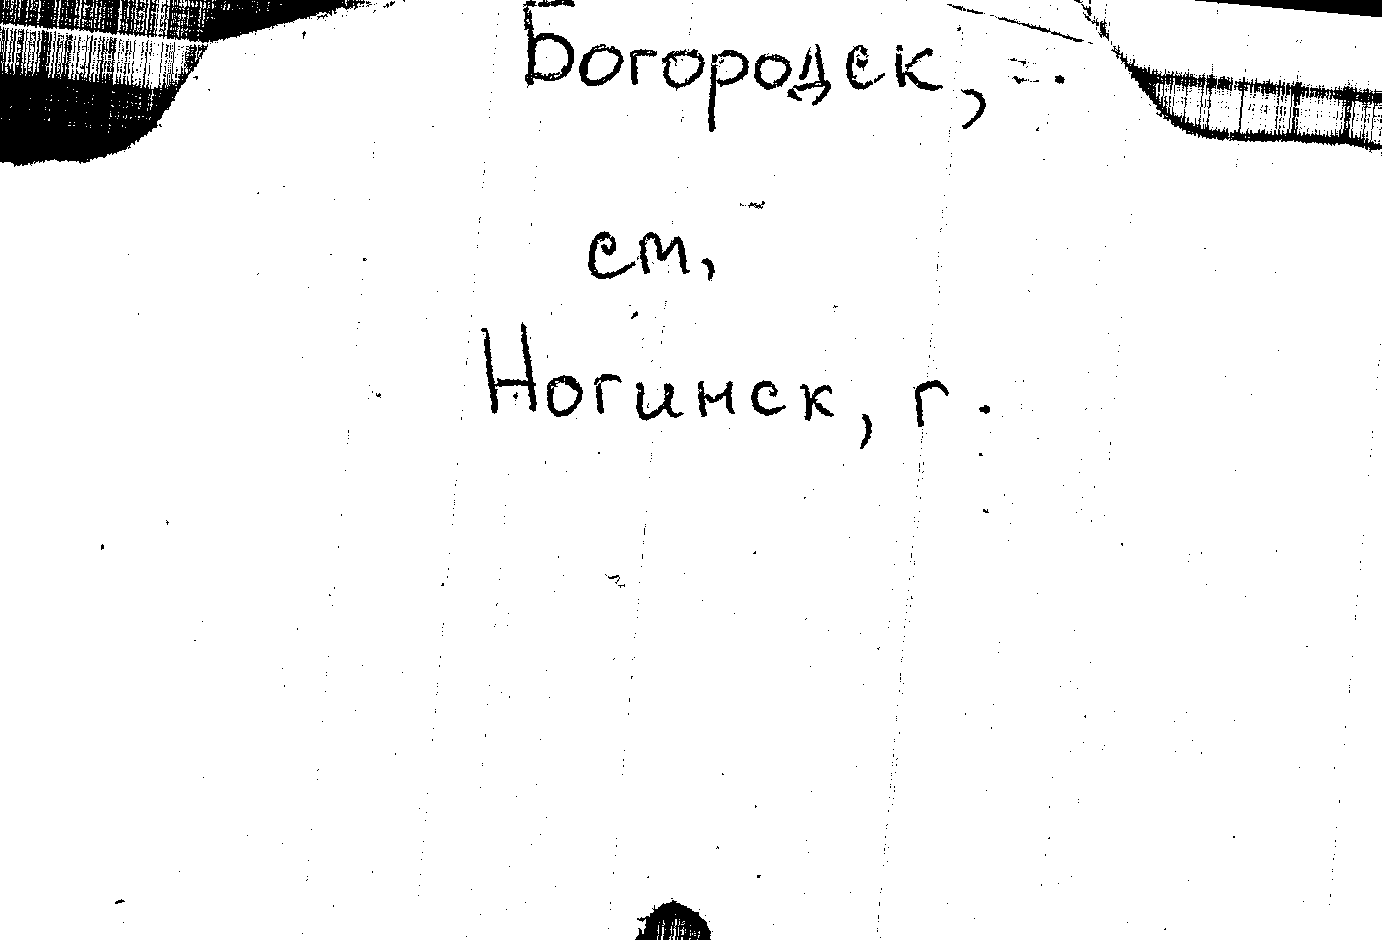 Богородск,
см.
Ногинск, г.